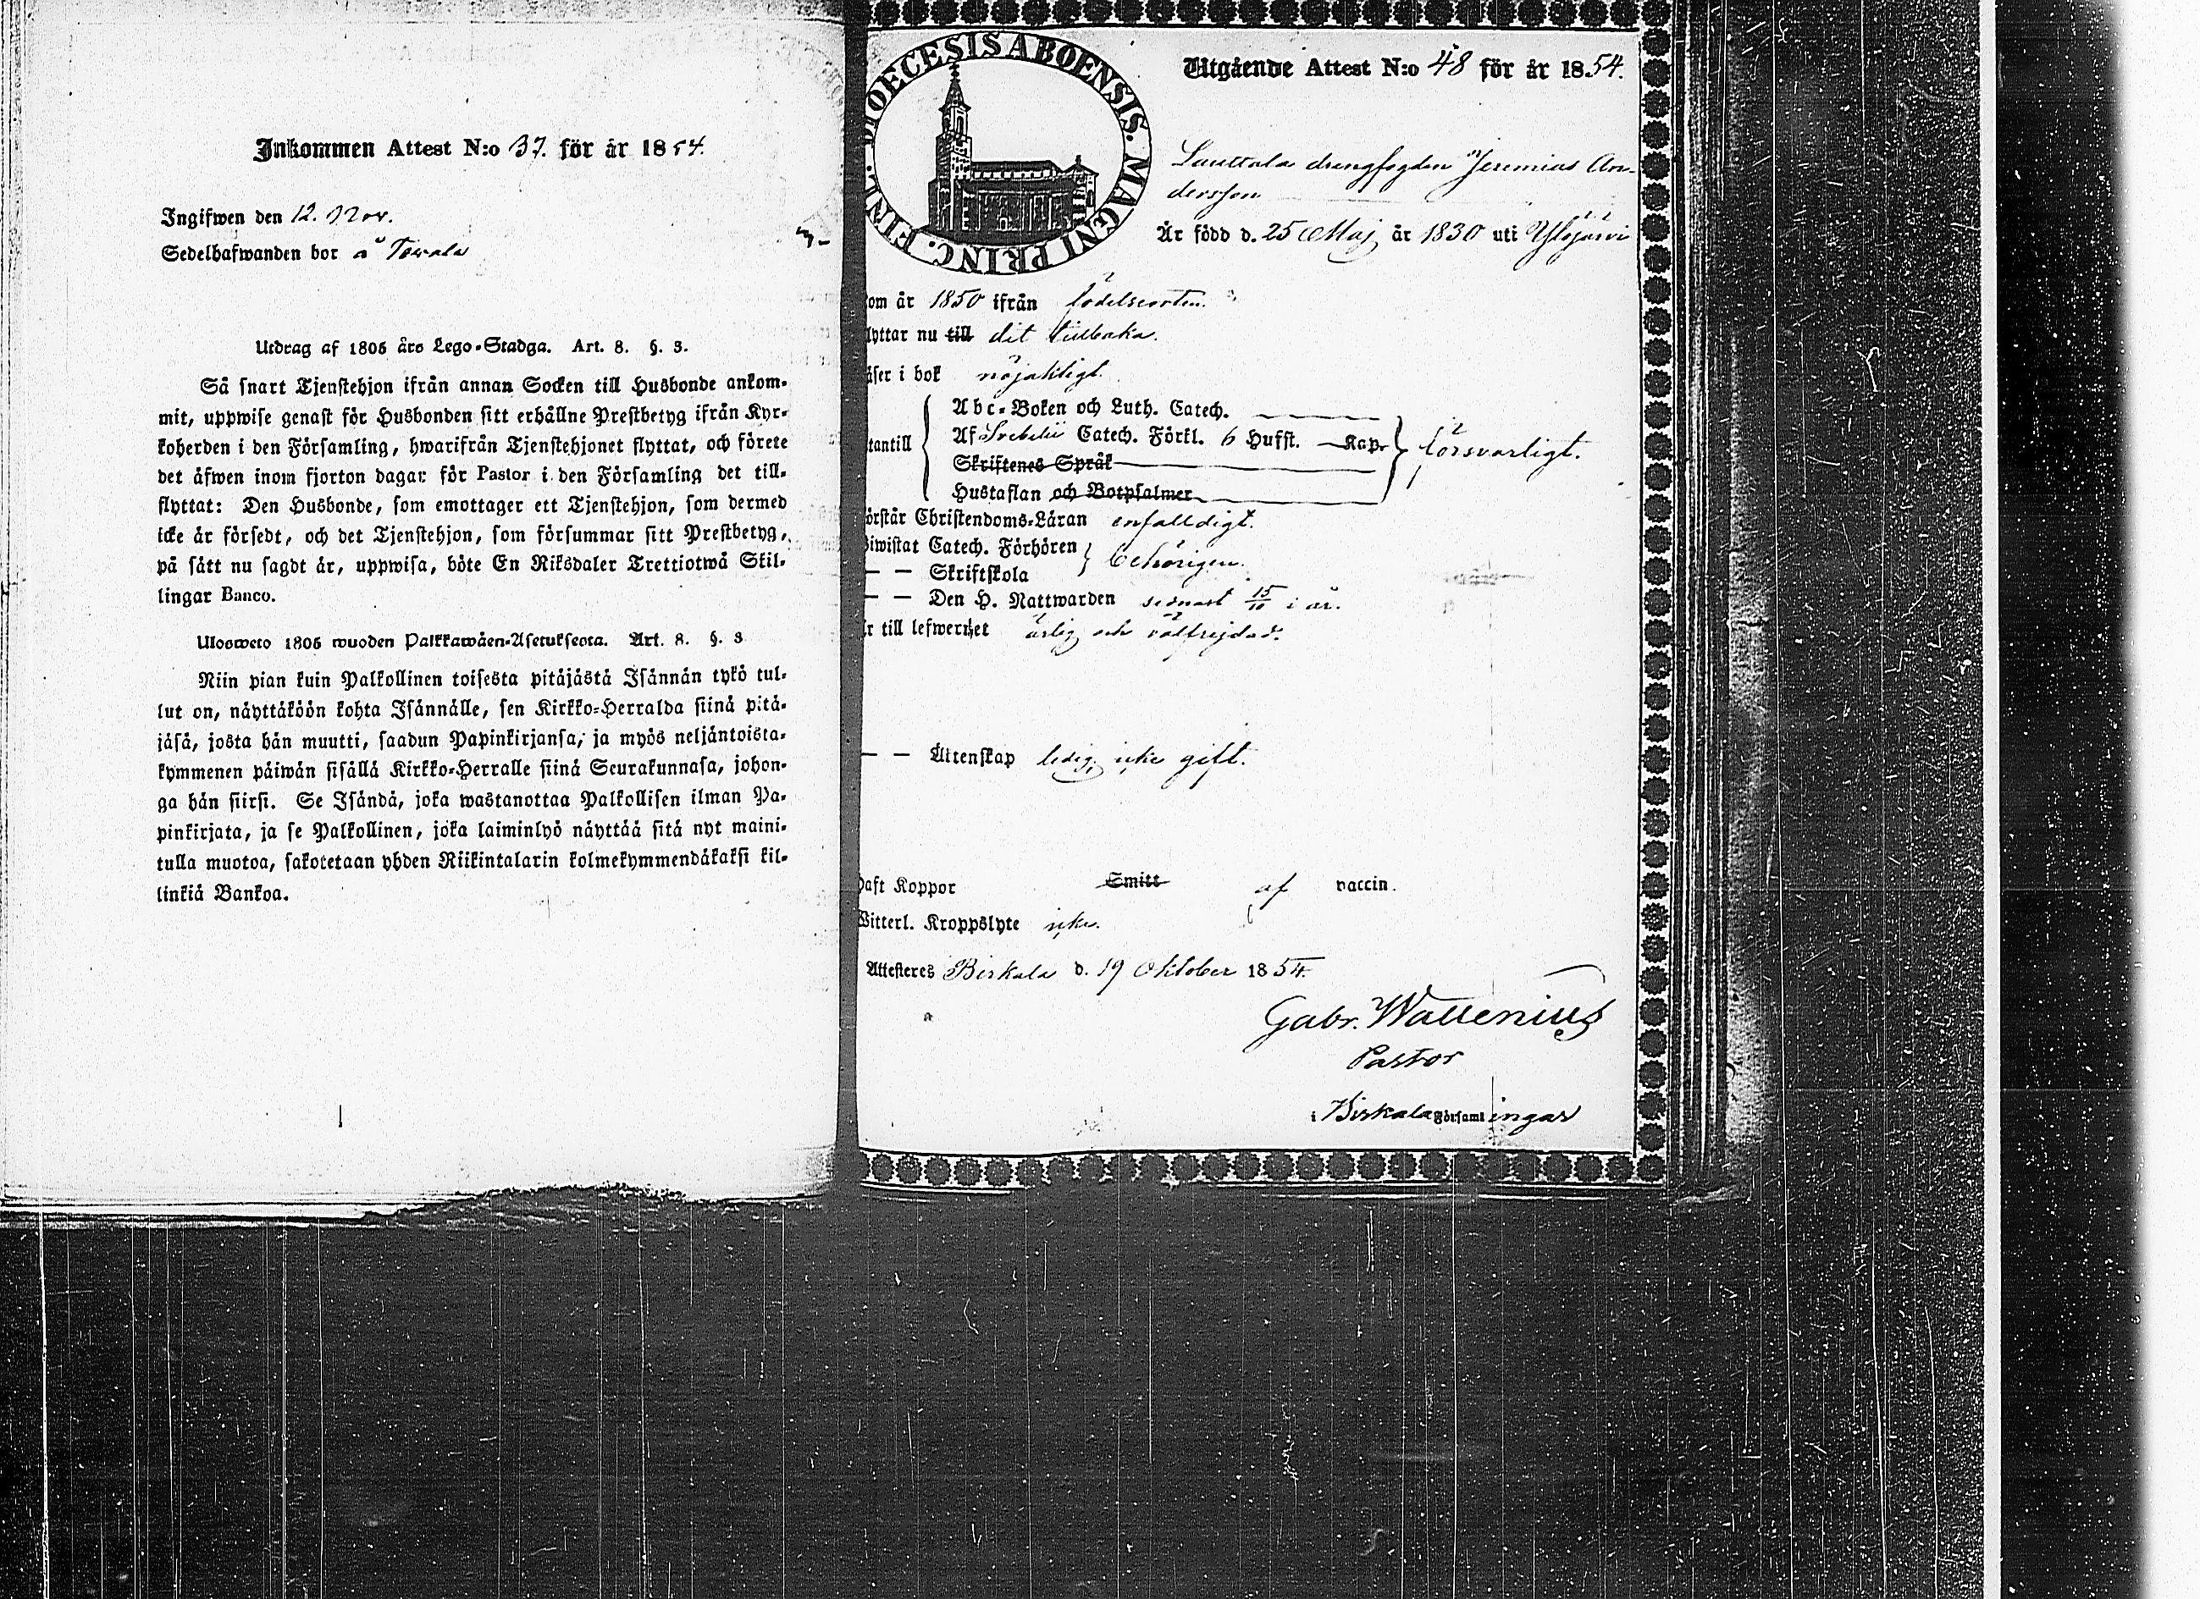 Inkommen Attest N:o 37. för år 1854.
Ingifwen den 12. Nov.
Sedelhafwanden bor å Towala
Utdrag af 1805 års Lego-Stadga. Art. 8. §. 3.
Så snart Tjenstehjon ifrån annan Socken till Husbonde ankom-
mit, uppwise genast för Husbonden sitt erhållne Prestbetyg ifrån Kyr-
koherden i den Församling, hwarifrån Tjenstehjonet flyttat, och förete
det äfwen inom fjorton dagar för Pastor i den Församling det till-
flyttat: Den Husbonde, som emottager ett Tjenstehjon, som dermed
icke är försedt, och det Tjenstehjon, som försummar sitt Prestbetyg,
på sätt nu sagdt är, uppwisa, böte En Riksdaler Trettiotwå Skil-
lingar Banco.
Ulosweto 1805 wuoden Palkkawäen-Asetuksesta. Art. 8. §. 3
Niin pian kuin Palkollinen toisesta pitäjästä Isännän tykö tul-
lut on, näyttäköön kohta Isännälle, sen Kirkko-Herralda siinä pitä-
jäsä, josta hän muutti, saadun Papinkirjansa, ja myös neljäntoista-
kymmenen päiwän sisällä Kirkko-Herralle siinä Seurakunnasa, johon-
ga hän siirsi. Se Isändä, joka wastanottaa Palkollisen ilman Pa-
pinkirjata, ja se Palkollinen, joka laiminlyö näyttää sitä nyt maini-
tulla muotoa, sakotetaan yhden Riikintalarin kolmekymmendäkaksi kil-
linkiä Bankoa.
DIOECESIS ABOENSIS. MAGNI PRINC. FINL.
Utgående Attest N:o 48 för år 1854.
Lauttala drengfogden Jeremias An-
dersson
Är född d. 25 Maj år 1830 uti Ylöjärvi
om år 1850 ifrån födelseorten.
lyttar nu till dit tillbaka.
äser i bok nöjaktligt.
Abc-Boken och Luth. Catech.
Af Svebelii Catech. Förkl. 6 Hufst. Kap.
tantill försvarligt.
Skriftenes Språk
Hustaflan och Botpsalmer
örstår Christendoms-Läran enfalldigt.
iwistat Catech. Förhören
behörigen.
— — Skriftskola
— — Den H. Nattwarden sednast 15/10 i år.
r till lefwernet ärlig och välfrejdad.
— — Ättenskap ledig, icke gift.
aft Koppor Smitt af vaccin.
Witterl. Kroppslyte icke.
Attesteres Birkala d. 19 Oktober 1854.
Gabr. Wallenius
Pastor
i Birkala Församlingar